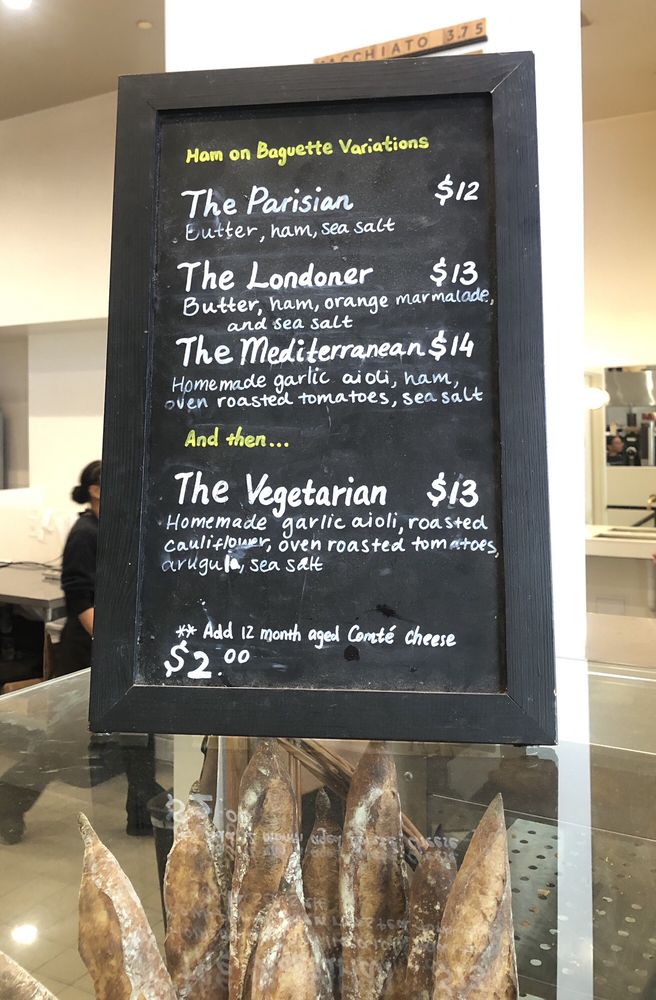 MACCHIATO 3.75
Ham on Baguette Variations
The Parisian $12
Butter, ham, sea salt
The Londoner $13
Butter, ham, orange marmalade,
and sea salt
The Mediterranean $14
Homemade garlic aioli, ham,
oven roasted tomatoes, sea salt
And then...
The Vegetarian $13
Homemade garlic aioli, roasted
cauliflower, oven roasted tomatoes,
arugula, sea salt
** Add 12 month aged Comté cheese
$2.00